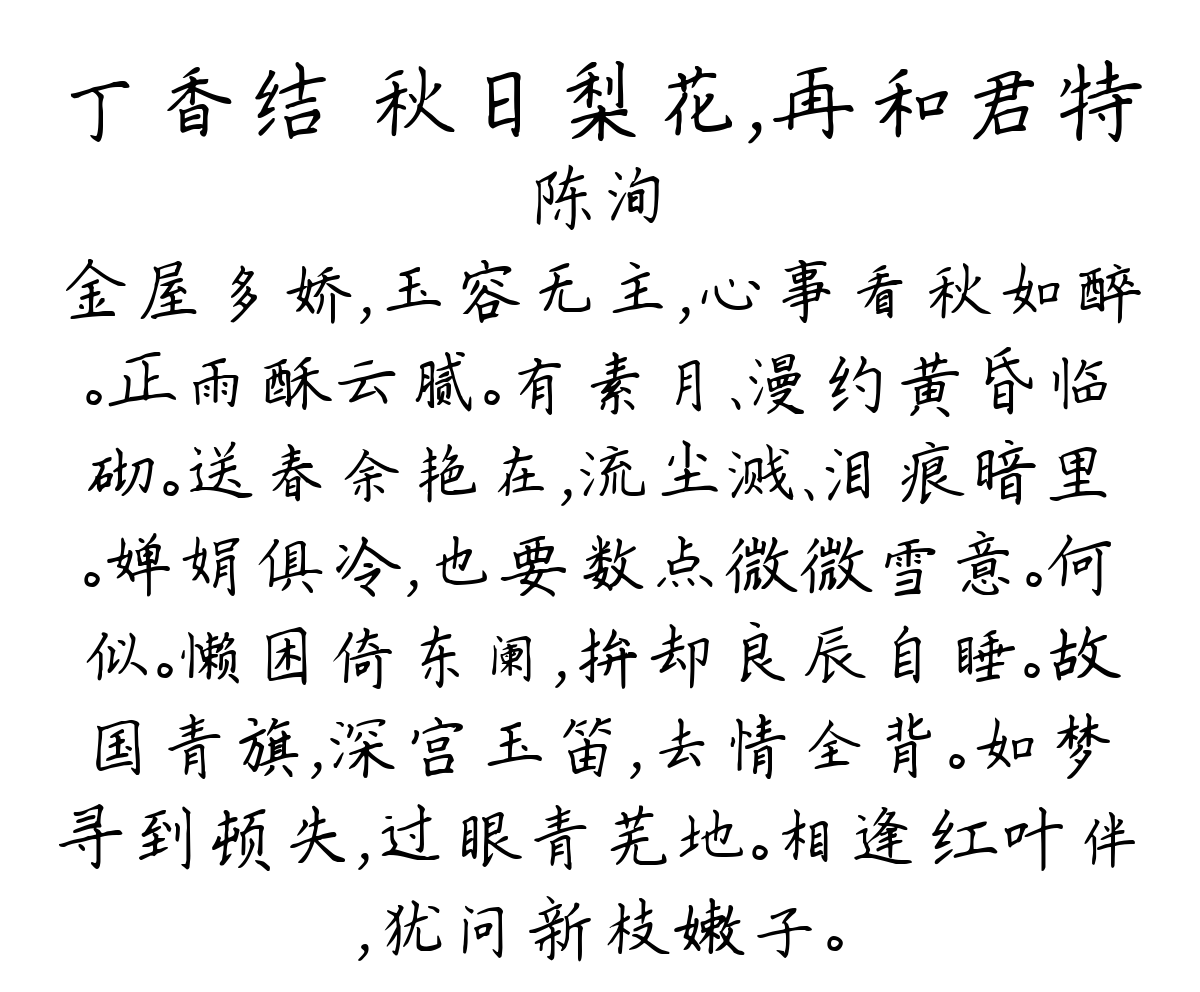 丁香结 秋日梨花,再和君特
陈洵
金屋多娇,玉容无主,心事看秋如醉
。正雨酥云腻。有素月、漫约黄昏临
砌。送春余艳在,流尘溅、泪痕暗里
。婵娟俱冷,也要数点微微雪意。何
似。懒困倚东阑,拚却良辰自睡。故
国青旗,深宫玉笛,去情全背。如梦
寻到顿失,过眼青芜地。相逢红叶伴
,犹问新枝嫩子。